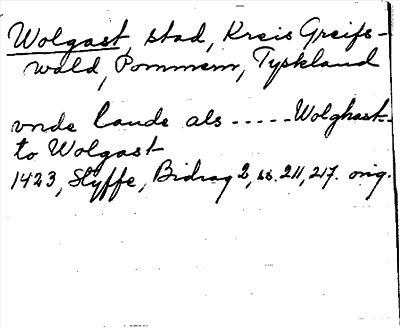 Wolgast, stad, Kreis Greifs-
wald, Pommern, Tyskland
vnde lande als ----- Wolghast
to Wolgast
1423, Styffe, Bidrag 2, ss. 211, 217. orig.